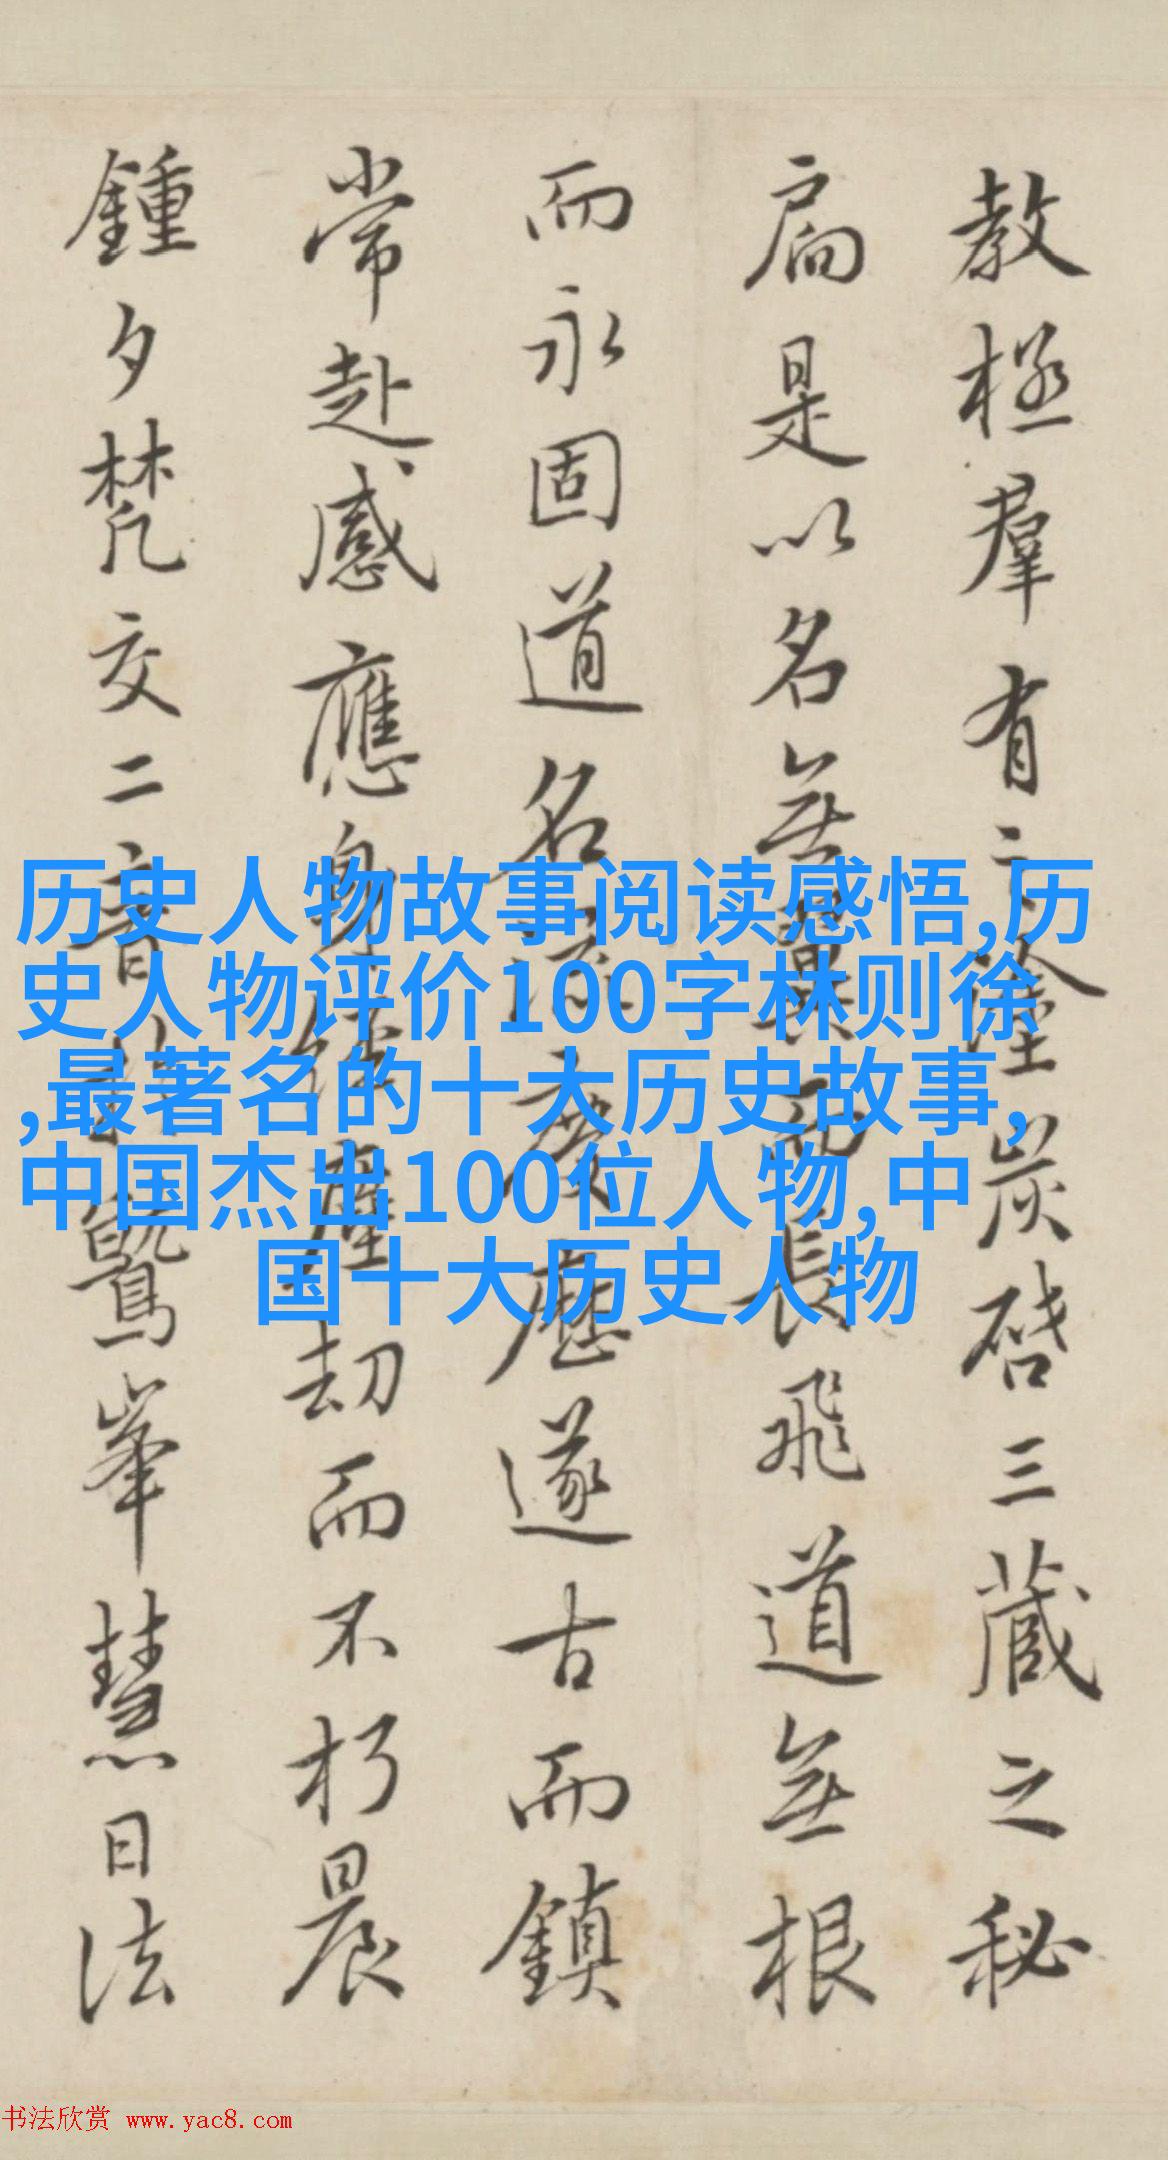 教拯羣有之塗炭啓三藏之秘
扃是以名無翼而長飛道無根
而永固道名流慶歷遂古而鎮
常赴感應身經塵劫而不朽晨
鍾夕梵交二音於鷲峯慧日法
历史人物故事阅读感悟,历
史人物评价100字林则徐
,最著名的十大历史故事,
中国杰出100位人物,中
国十大历史人物
书法欣赏 www.yac8.com